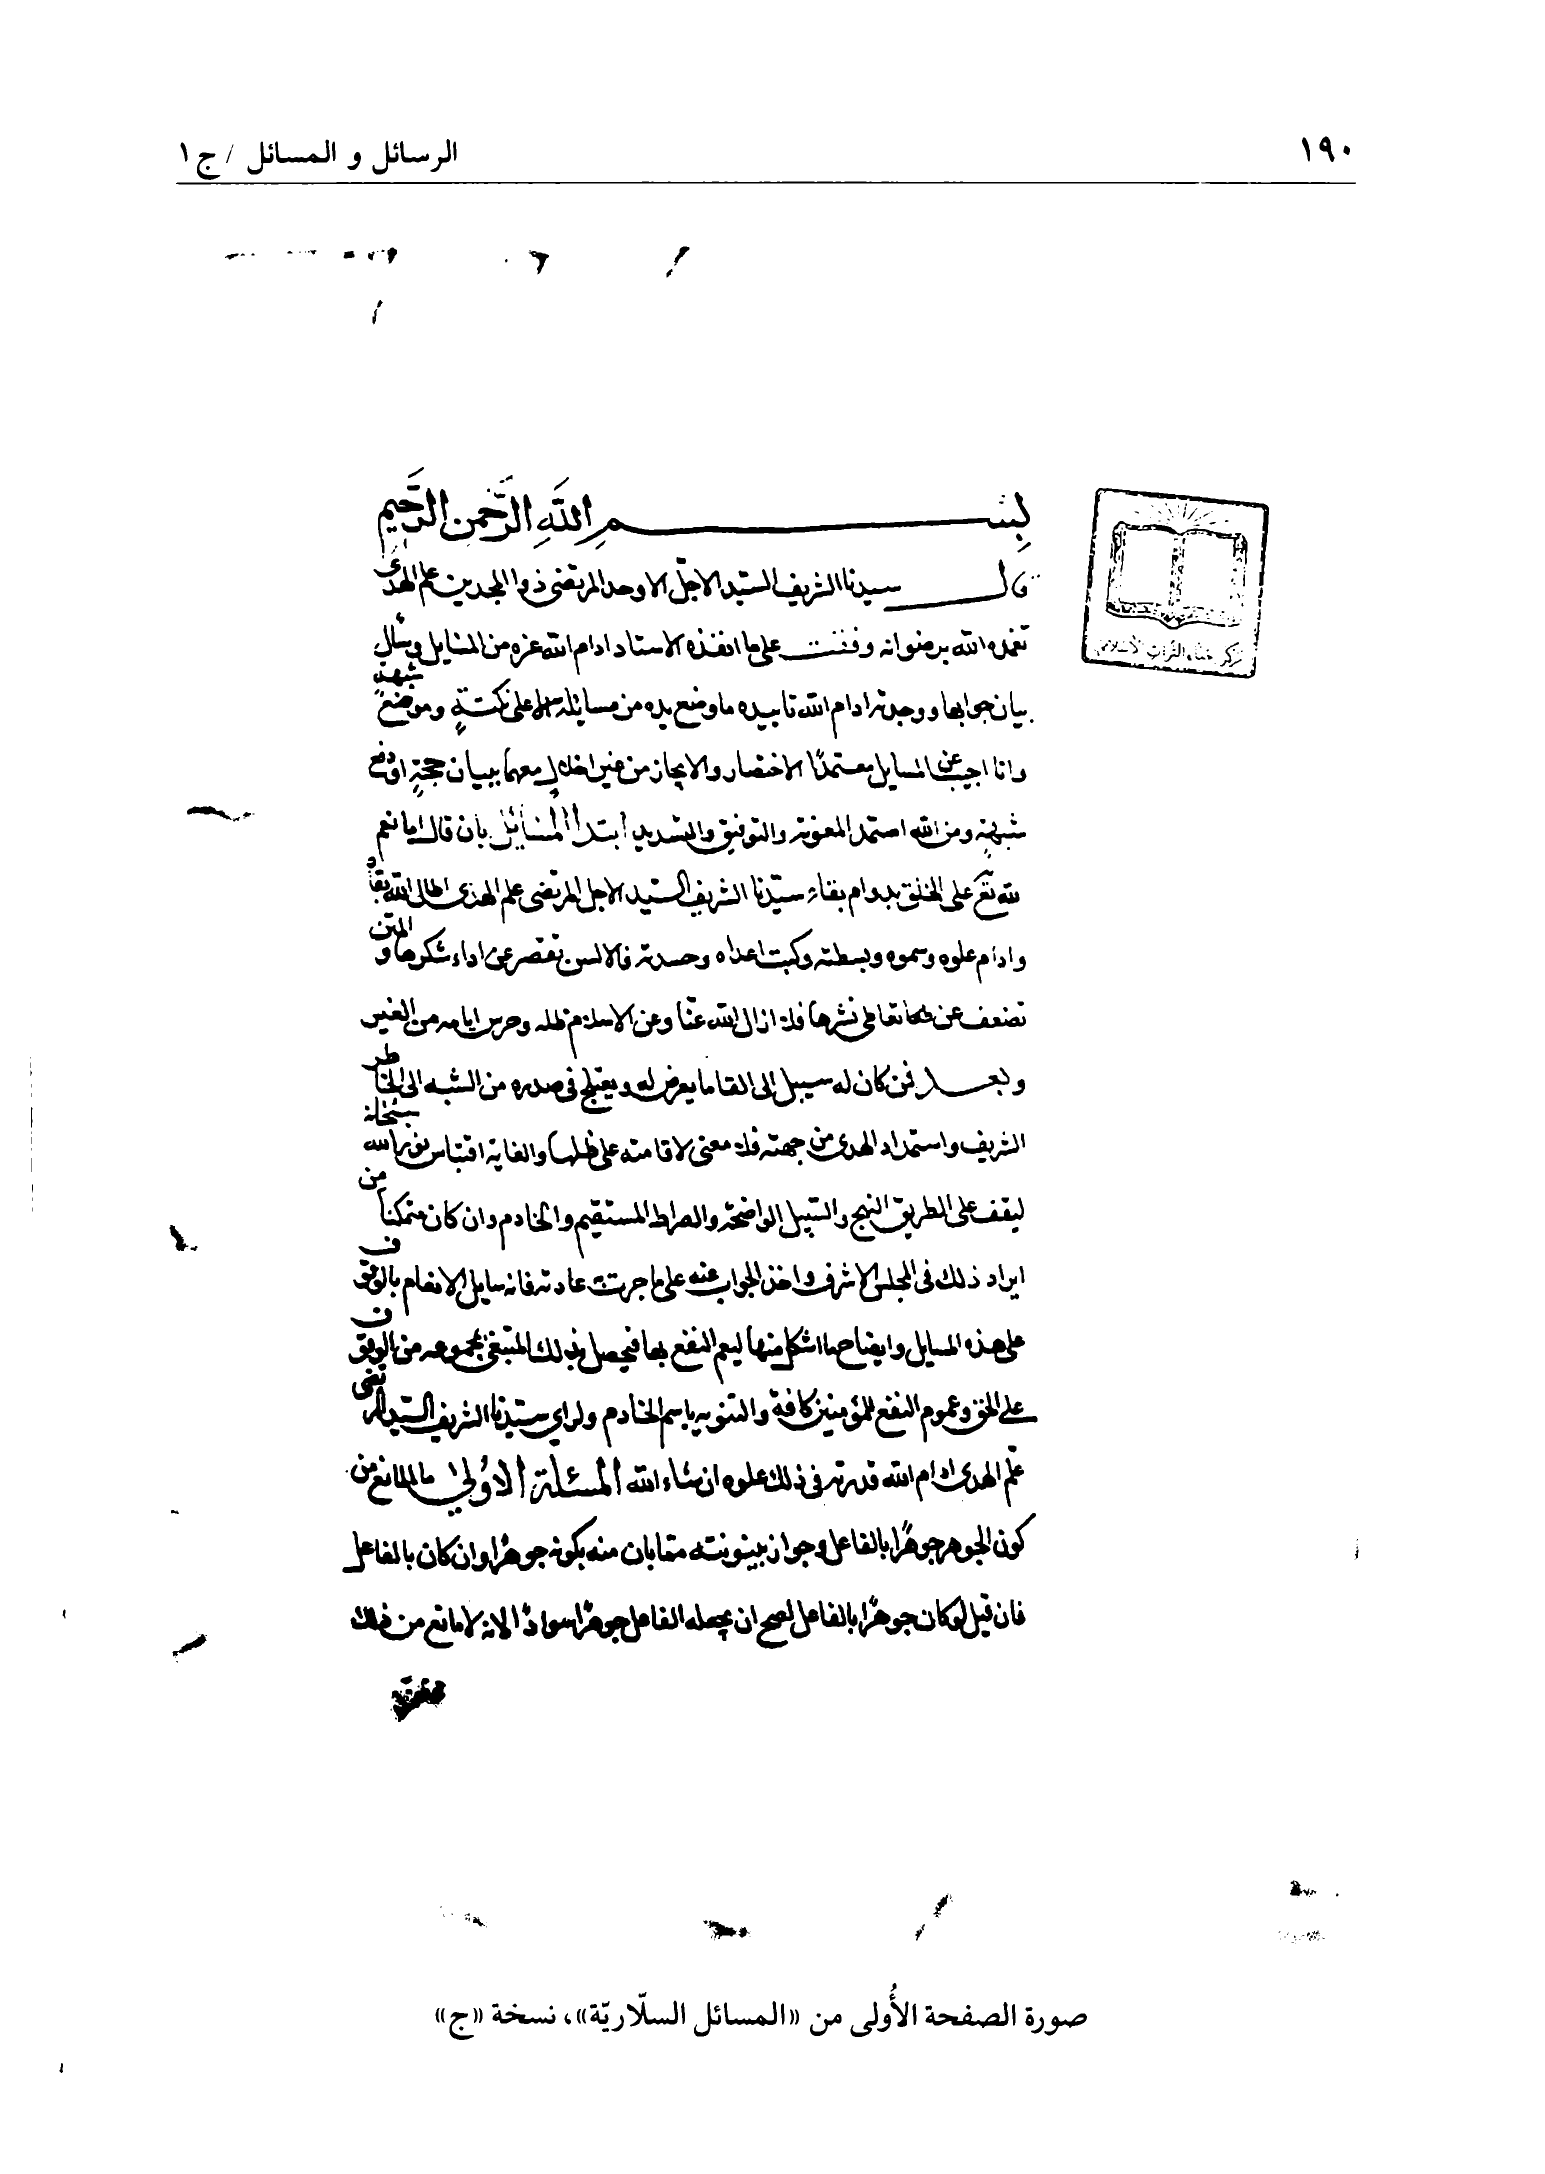 ١٩٠
الرسائل و المسائل / ج ١
بِسْمِ اللَّهِ الرَّحْمنِ الرَّحِيمِ
قال سيدنا الشريف السيد الاجلّ الاوحد المرتضى ذو المجدين علم الهدى
تغمده الله برضوانه وقفت على ما انفذه الاستاد ادام الله عزه من المسايل وسأل
بيان جوابها ووجدته ادام الله تاييده ما وضع يده من مسايله الا على نكتةٍ وموضع شبهةٍ
وانا اجيب عن المسايل معتمدًا الاختصار والايجاز من غير اخلالٍ معهما ببيان حجةٍ او دفع
شبهةٍ ومن الله استمد المعونة والتوفيق والتسديد ابتدأ المسايل بان قال اما نعم
لله تع على الخلق بدوام بقاء سيّدنا الشريف السيّد الاجل المرتضى علم الهدى اطال الله بقاه
وادام علوه وسموه وبسطته وكبت اعداه وحسدته فالالسن تقصر عن اداء شكرها و المنن
تضعف عن تعاطى نشرها فلا ازال الله عنّا وعن الاسلام ظله وحرس ايامه من الغير
وبعد فمن كان له سبيل الى القا ما يعرض له ويعتلج فى صدره من الشبه الى الخاطر
الشريف واستمداد الهدى من جهته فلا معنى لاقامته على ظلمها والغاية اقتباس نور الله سبحانه
ليقف على الطريق النهج والسبيل الواضحة والصراط المستقيم والخادم وان كان متمكناً من
ايراد ذلك فى المجلس الاشرف واخذ الجواب عنه على ما جرت عادته فانه سايل الانعام بالوقوف
على هذه المسايل وايضاح ما اشكل منها ليعم النفع بها فيحصل بذلك المبتغى بمجموعه من الوقوف
على الحق وعموم النفع للمؤمنين كافة والتنويه باسم الخادم ولراي سيّدنا الشريف السيّد المرتضى
علم الهدى ادام الله قدرته فى ذلك علوه ان شاء الله المسئلة الاُولى ما المانع من
كون الجوهر جوهرًا بالفاعل وجواز بينونته مما بان منه بكونه جوهرًا وان كان بالفاعل
فان قيل لو كان جوهرًا بالفاعل لصح ان يجعله الفاعل جوهرًا سوادًا لانه لا مانع من ذلك
صورة الصفحة الأُولى من «المسائل السلّاريّة»، نسخة «ج»